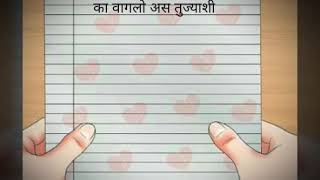 का वागलो अस तुज्याशी